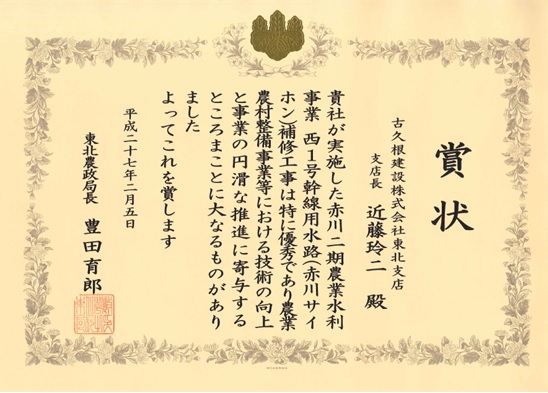 賞状
古久根建設株式会社東北支店
支店長 近藤玲二 殿
貴社が実施した赤川二期農業水利
事業 西1号幹線用水路(赤川サイ
ホン)補修工事は特に優秀であり農業
農村整備事業等における技術の向上
と事業の円滑な推進に寄与する
ところまことに大なるものがあり
ました
よってこれを賞します
平成二十七年二月五日
東北農政局長 豊田育郎